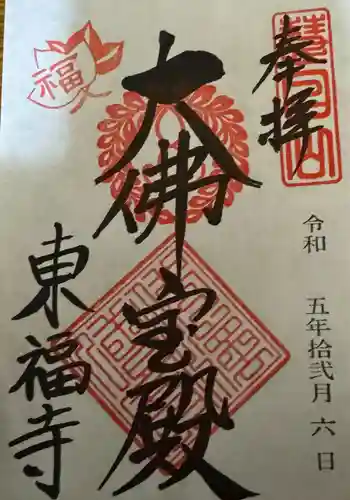 奉拝
慧日山
令和 五年拾弐月 六日
大佛寳殿
東福寺
福